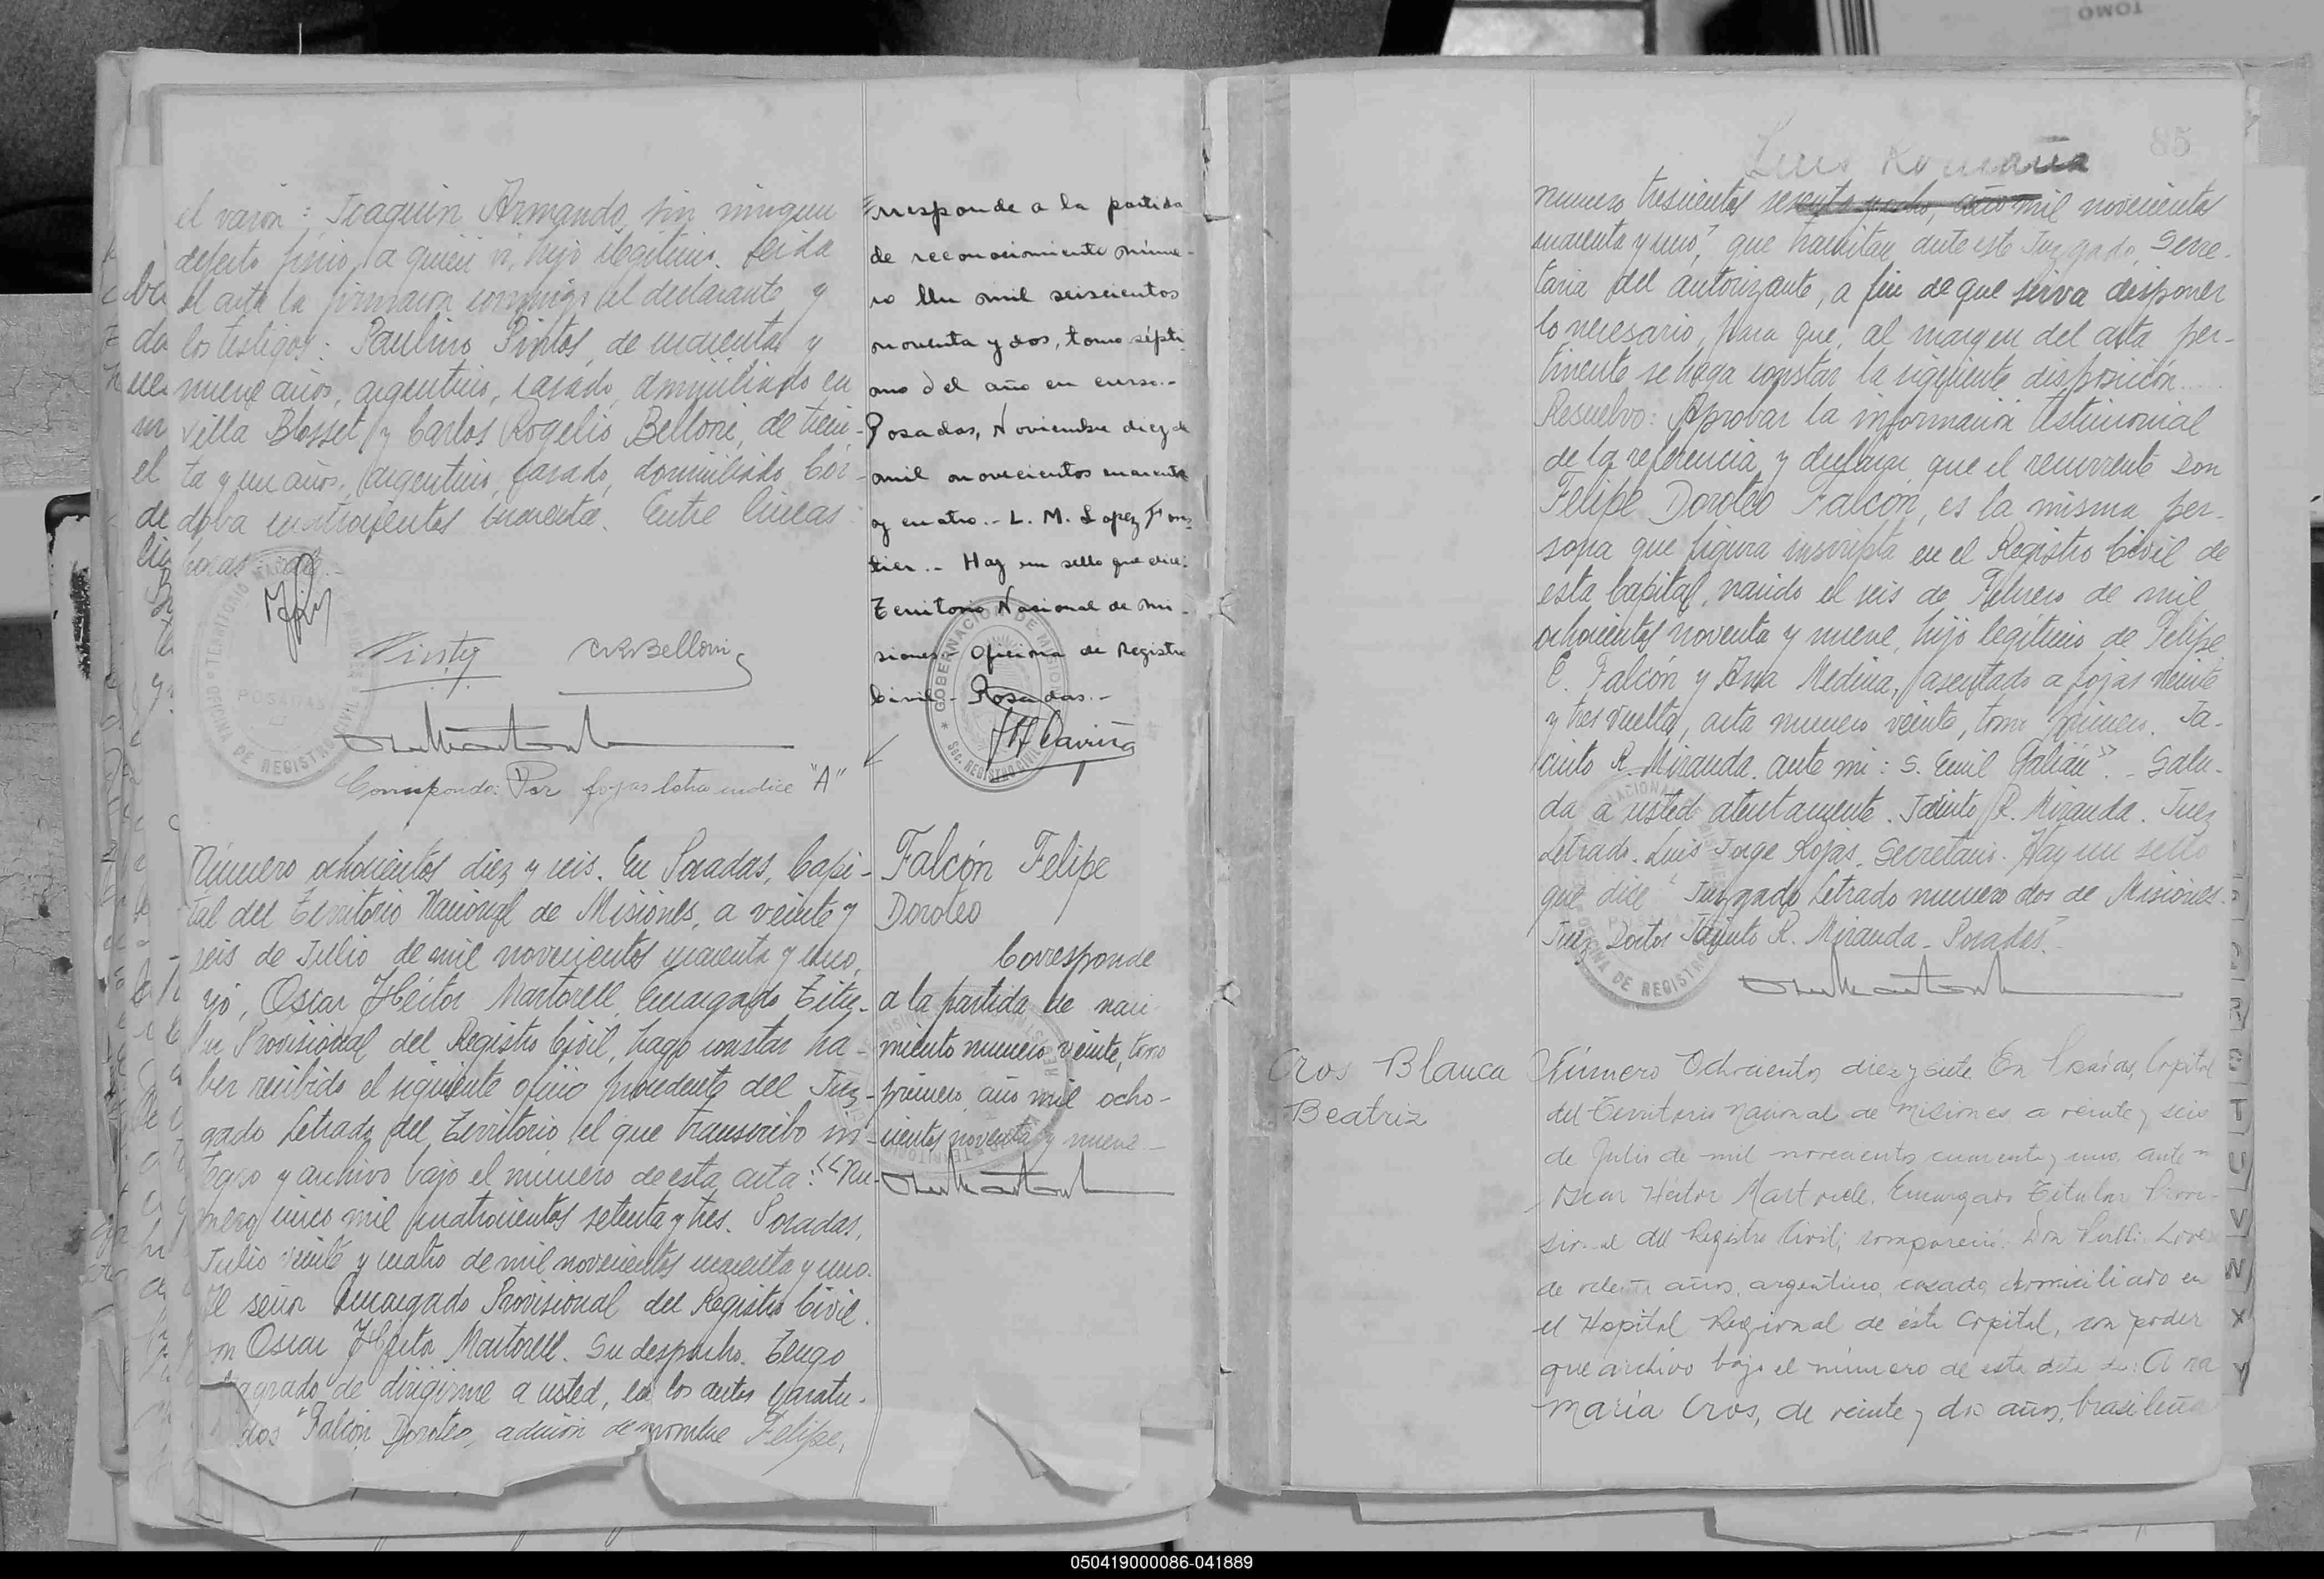 el varón: Joaquin Armando, sin ningun
defecto físico, a quien vi, hijo ilegitimo. Leida
el acta la firmaron conmigo el declarante y
los testigos: Paulino Pintos, de cuarenta y
nueve años, argentino, casado, domiciliado en
Villa Blosset y Carlos Rogelio Belloni, de trein-
ta y un años, argentino, casado, domiciliado Cór-
doba cuatrocientos cincuenta. Entre lineas
Pintos
CRBelloni
Corresponde: Por fojas letra indice "A"
rresponde a la partida
de reconocimiento núme-
ro Un mil seiscientos
noventa y dos, tomo sépti-
mo del año en curso.-
Posadas, Noviembre diez de
mil novecientos cuarenta
y cuatro.- L. M. Lopez
.- Hay un sello que dice:
Territorio Nacional de Mi-
siones - Oficina de Registro
Civil - Posadas.-
GOBERNACION DE MISIONES
SEC. REGISTRO CIVIL
TERRITORIO NACIONAL
POSADAS
OFICINA DE REGISTRO CIVIL
Número ochocientos diez y seis. En Posadas, Capi-
tal del Territorio Nacional de Misiones, a veinte y
seis de Julio de mil novecientos cuarenta y uno,
yo, Oscar Héctor Martorell, Encargado Titu-
lar Provisional del Registro Civil, hago constar ha-
ber recibido el siguiente oficio procedente del Juz-
gado Letrado del Territorio el que transcribo ín-
tegro y archivo bajo el número de esta acta: "Nú-
mero cinco mil cuatrocientos setenta y tres. Posadas,
Julio veinte y cuatro de mil novecientos cuarenta y uno.
Al señor Encargado Provisional del Registro Civil.
Don Oscar Héctor Martorell. Su despacho. Tengo
el agrado de dirigirme a usted, en los autos caratu-
lados "Falcón Doroteo, adición de nombre Felipe,
Falcón Felipe
Doroteo
Corresponde
a la partida de naci-
miento numero veinte, tomo
primero, año mil ocho-
cientos noventa y nueve.-
85
Luis
numero trescientos sesenta y ocho, año mil novecientos
cuarenta y uno", que tramitan ante este Juzgado, Secre-
taria del autorizante, a fin de que sirva disponer
lo necesario, para que, al margen del acta per-
tinente se haga constar la siguiente disposición....
Resuelvo: Aprobar la información testimonial
de la referencia y declarar que el recurrente Don
Felipe Doroteo Falcón, es la misma per-
sona que figura inscripta en el Registro Civil de
esta Capital, nacido el seis de Febrero de mil
ochocientos noventa y nueve, hijo legitimo de Felipe
C. Falcón y Ana Medina, asentado a fojas veinte
y tres vuelta, acta numero veinte, tomo primero. Ja-
cinto R. Miranda. ante mi: S. Emil Galián". - Salu-
da a usted atentamente. Jacinto R. Miranda. Juez
Letrado. Luis Jorge Rojas. Secretario. Hay un sello
que dice "Juzgado Letrado numero dos de Misiones.
Juez Doctor Jacinto R. Miranda - Posadas".
Cros Blanca
Beatriz
Número Ochocientos diez y siete. En Posadas, Capital
del Territorio Nacional de Misiones a veinte y seis
de Julio de mil novecientos cuarenta y uno, ante mí
Oscar Héctor Martorell, Encargado Titular Provi-
sional del Registro Civil, compareció: Don
de años, argentino, casado, domiciliado en
el Hospital Regional de ésta Capital, con poder
que archivo bajo el número de esta acta de: Ana
María Cros, de veinte y dos años, brasileña
TOMO
050419000086-041889